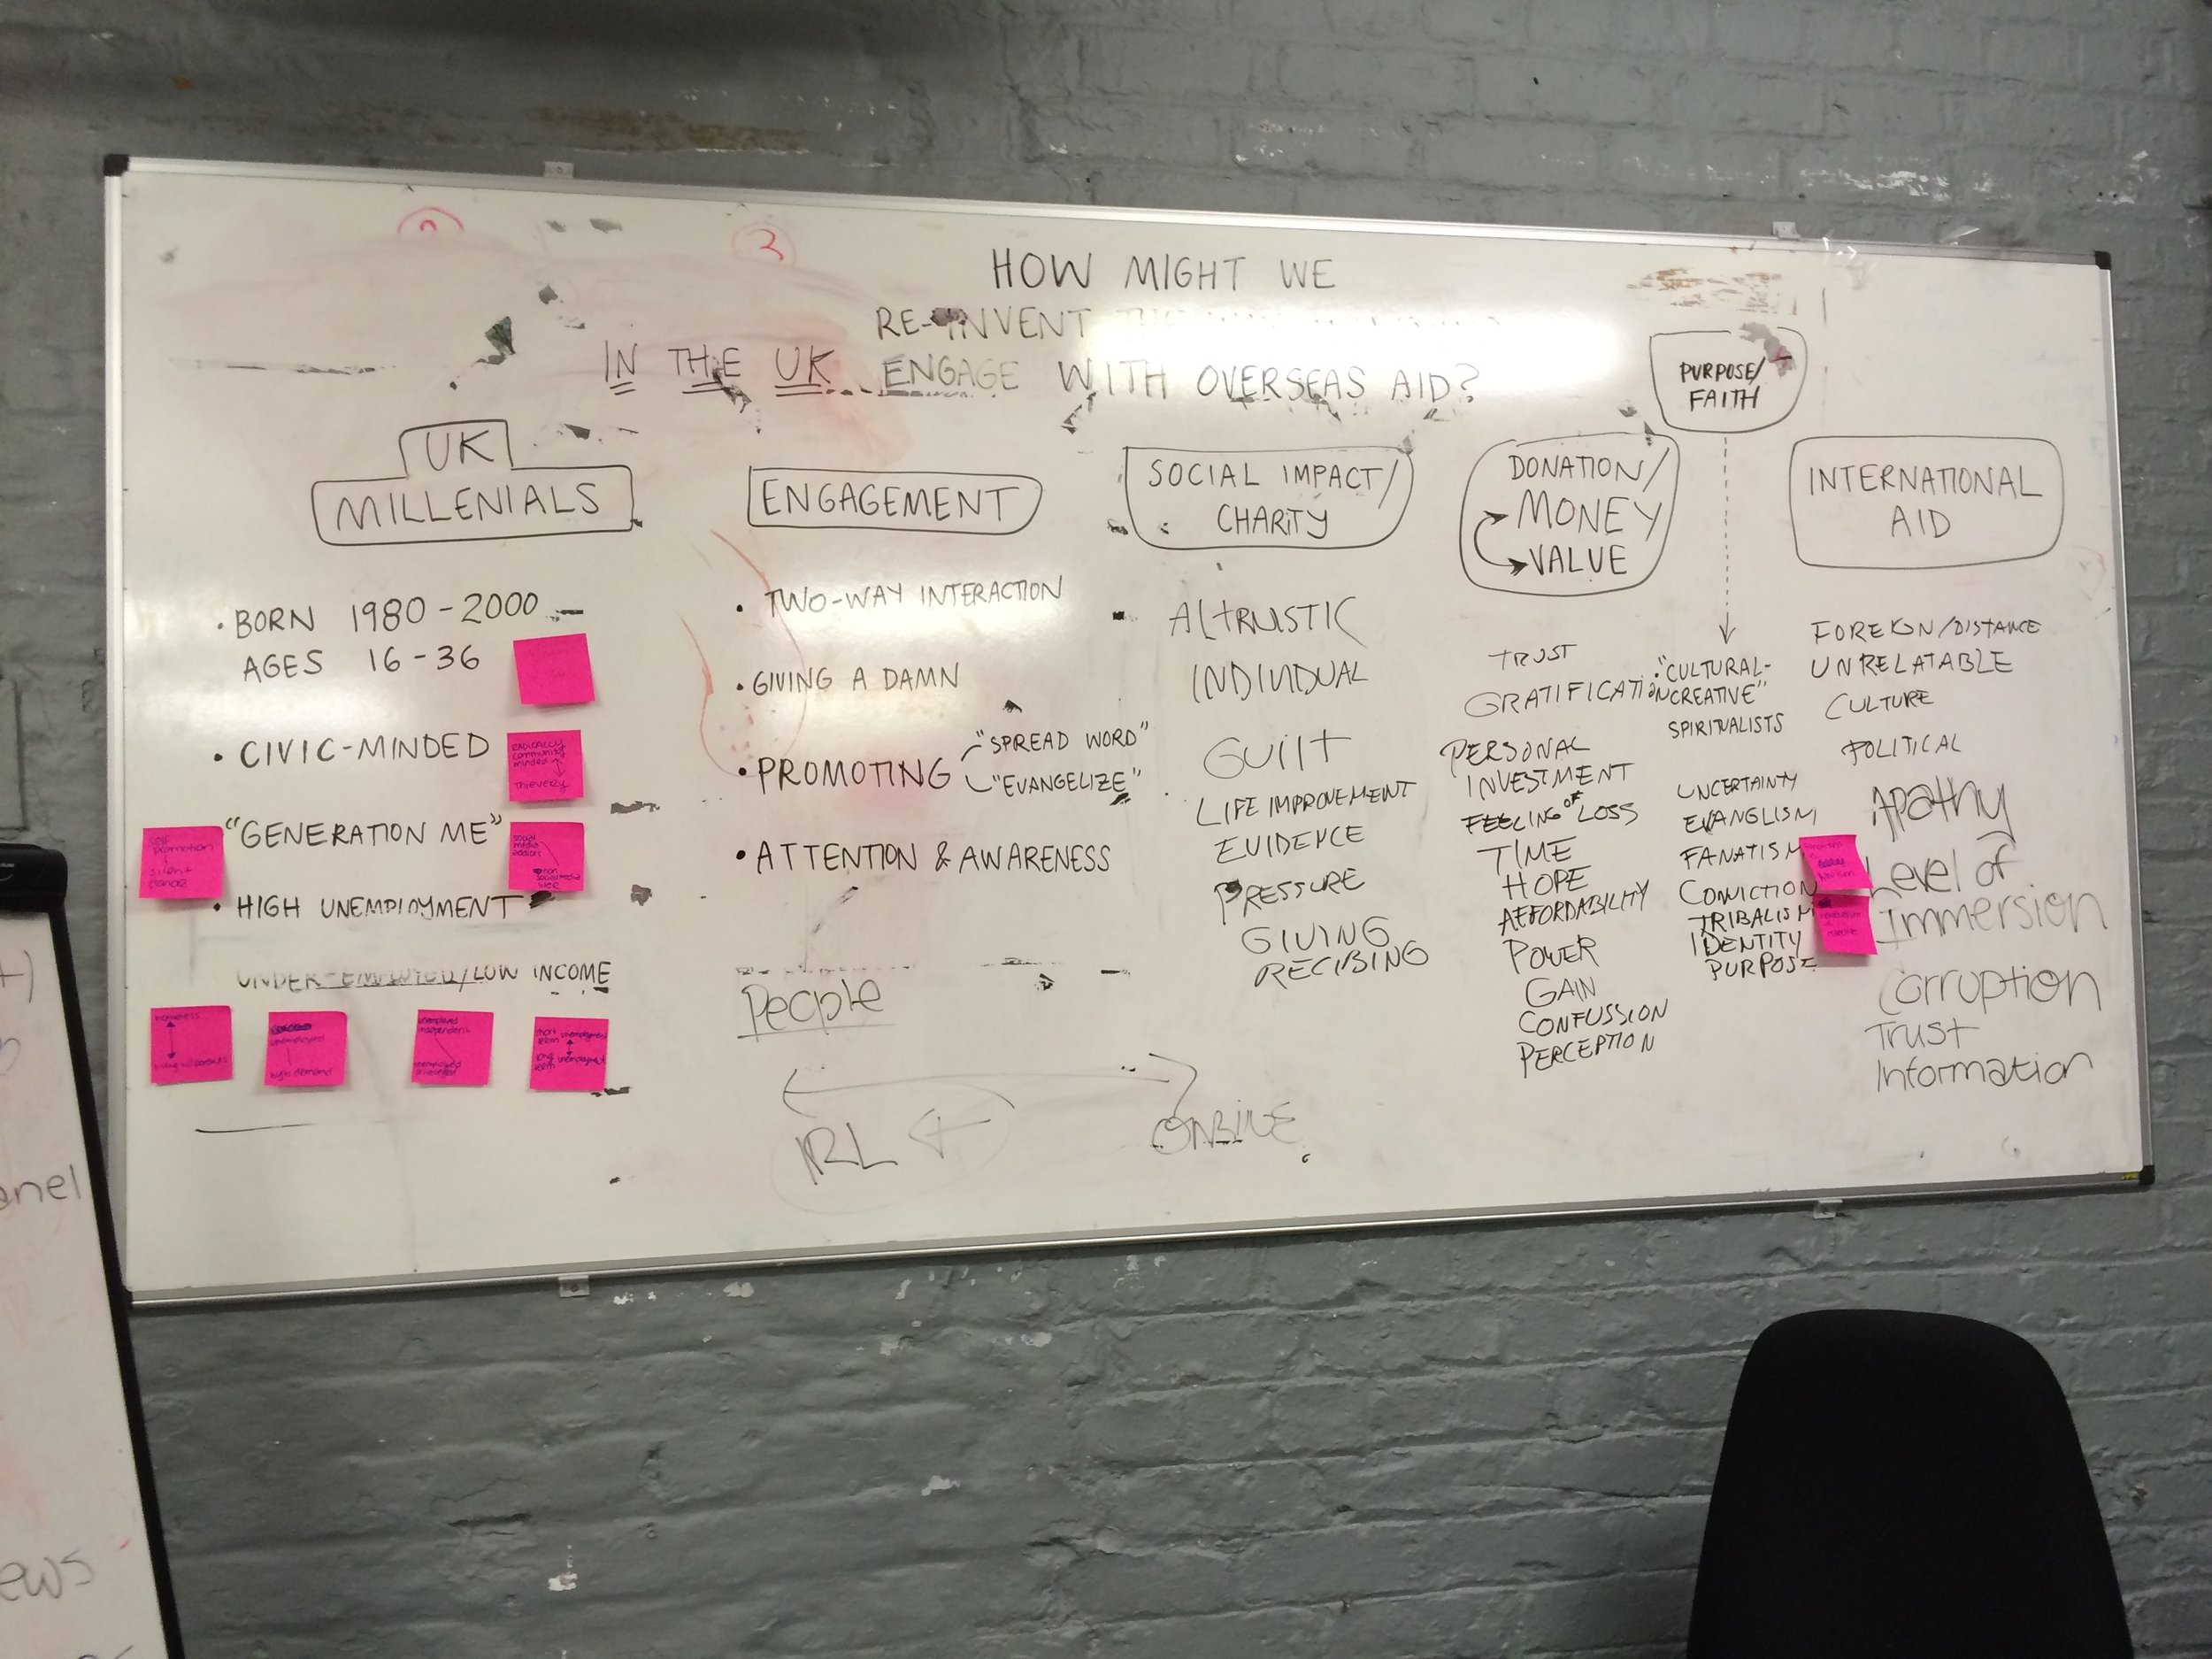 3
HOW MIGHT WE
RE-INVENT THE
IN THE UK ENGAGE WITH OVERSEAS AID?
UK
MILLENIALS
• BORN 1980-2000
AGES 16-36
• CIVIC-MINDED
RADICALLY
community
minded
THIEVERY
"GENERATION ME"
self
promotion
silent
social
media
addicts
non
social media
user
• HIGH UNEMPLOYMENT
UNDER-EMPLOYED/LOW INCOME
homeless
living w/ parents
unemployed
high demand
unemployed
independent
unemployed
privileged
short
term unemployment
long
term unemployment
ENGAGEMENT
• TWO-WAY INTERACTION
• GIVING A DAMN
• PROMOTING
"SPREAD WORD"
"EVANGELIZE"
• ATTENTION & AWARENESS
People
IRL
ONLINE
SOCIAL IMPACT/
CHARITY
ALTRUSTIC
INDIVIDUAL
GUILT
LIFE IMPROVEMENT
EVIDENCE
PRESSURE
GIVING
RECIBING
DONATION/
MONEY
VALUE
TRUST
GRATIFICATION
PERSONAL
INVESTMENT
FEELING OF LOSS
TIME
HOPE
AFFORDABILITY
POWER
GAIN
CONFUSSION
PERCEPTION
PURPOSE/
FAITH
• "CULTURAL-
CREATIVE"
SPIRITUALISTS
UNCERTAINTY
EVANGLISM
FANATISM
CONVICTION
TRIBALISM
IDENTITY
PURPOSE
INTERNATIONAL
AID
FOREIGN/DISTANCE
UNRELATABLE
CULTURE
POLITICAL
Apathy
Level of
Immersion
Corruption
Trust
Information
anel
ews